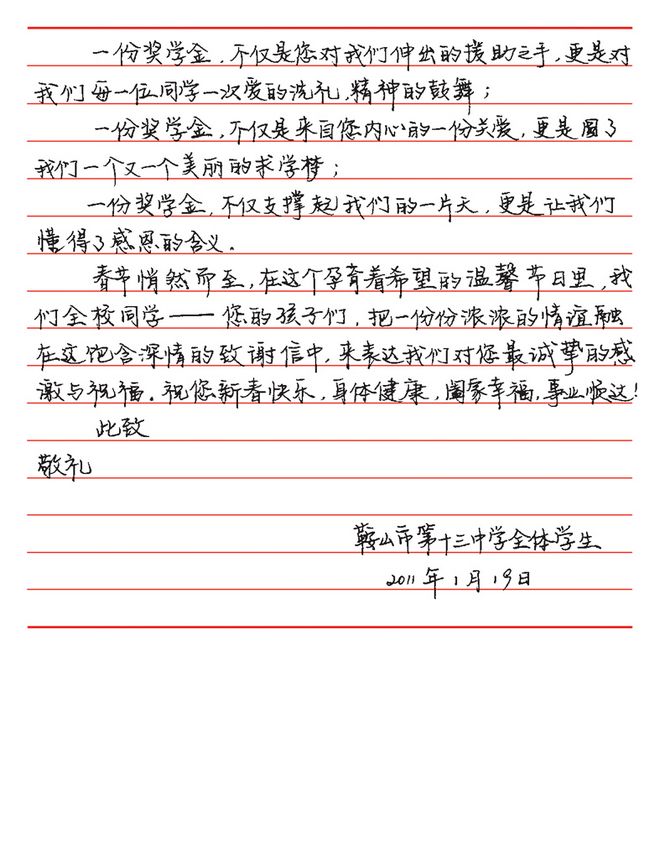 一份奖学金，不仅是您对我们伸出的援助之手，更是对
我们每一位同学一次爱的洗礼，精神的鼓舞；
一份奖学金，不仅是来自您内心的一份关爱，更是圆了
我们一个又一个美丽的求学梦；
一份奖学金，不仅支撑起我们的一片天，更是让我们
懂得了感恩的含义。
春节悄然而至，在这个孕育着希望的温馨节日里，我
们全校同学——您的孩子们，把一份份浓浓的情谊融
在这饱含深情的致谢信中，来表达我们对您最诚挚的感
激与祝福。祝您新春快乐，身体健康，阖家幸福，事业顺达！
此致
敬礼
鞍山市第十三中学全体学生
2011年1月19日